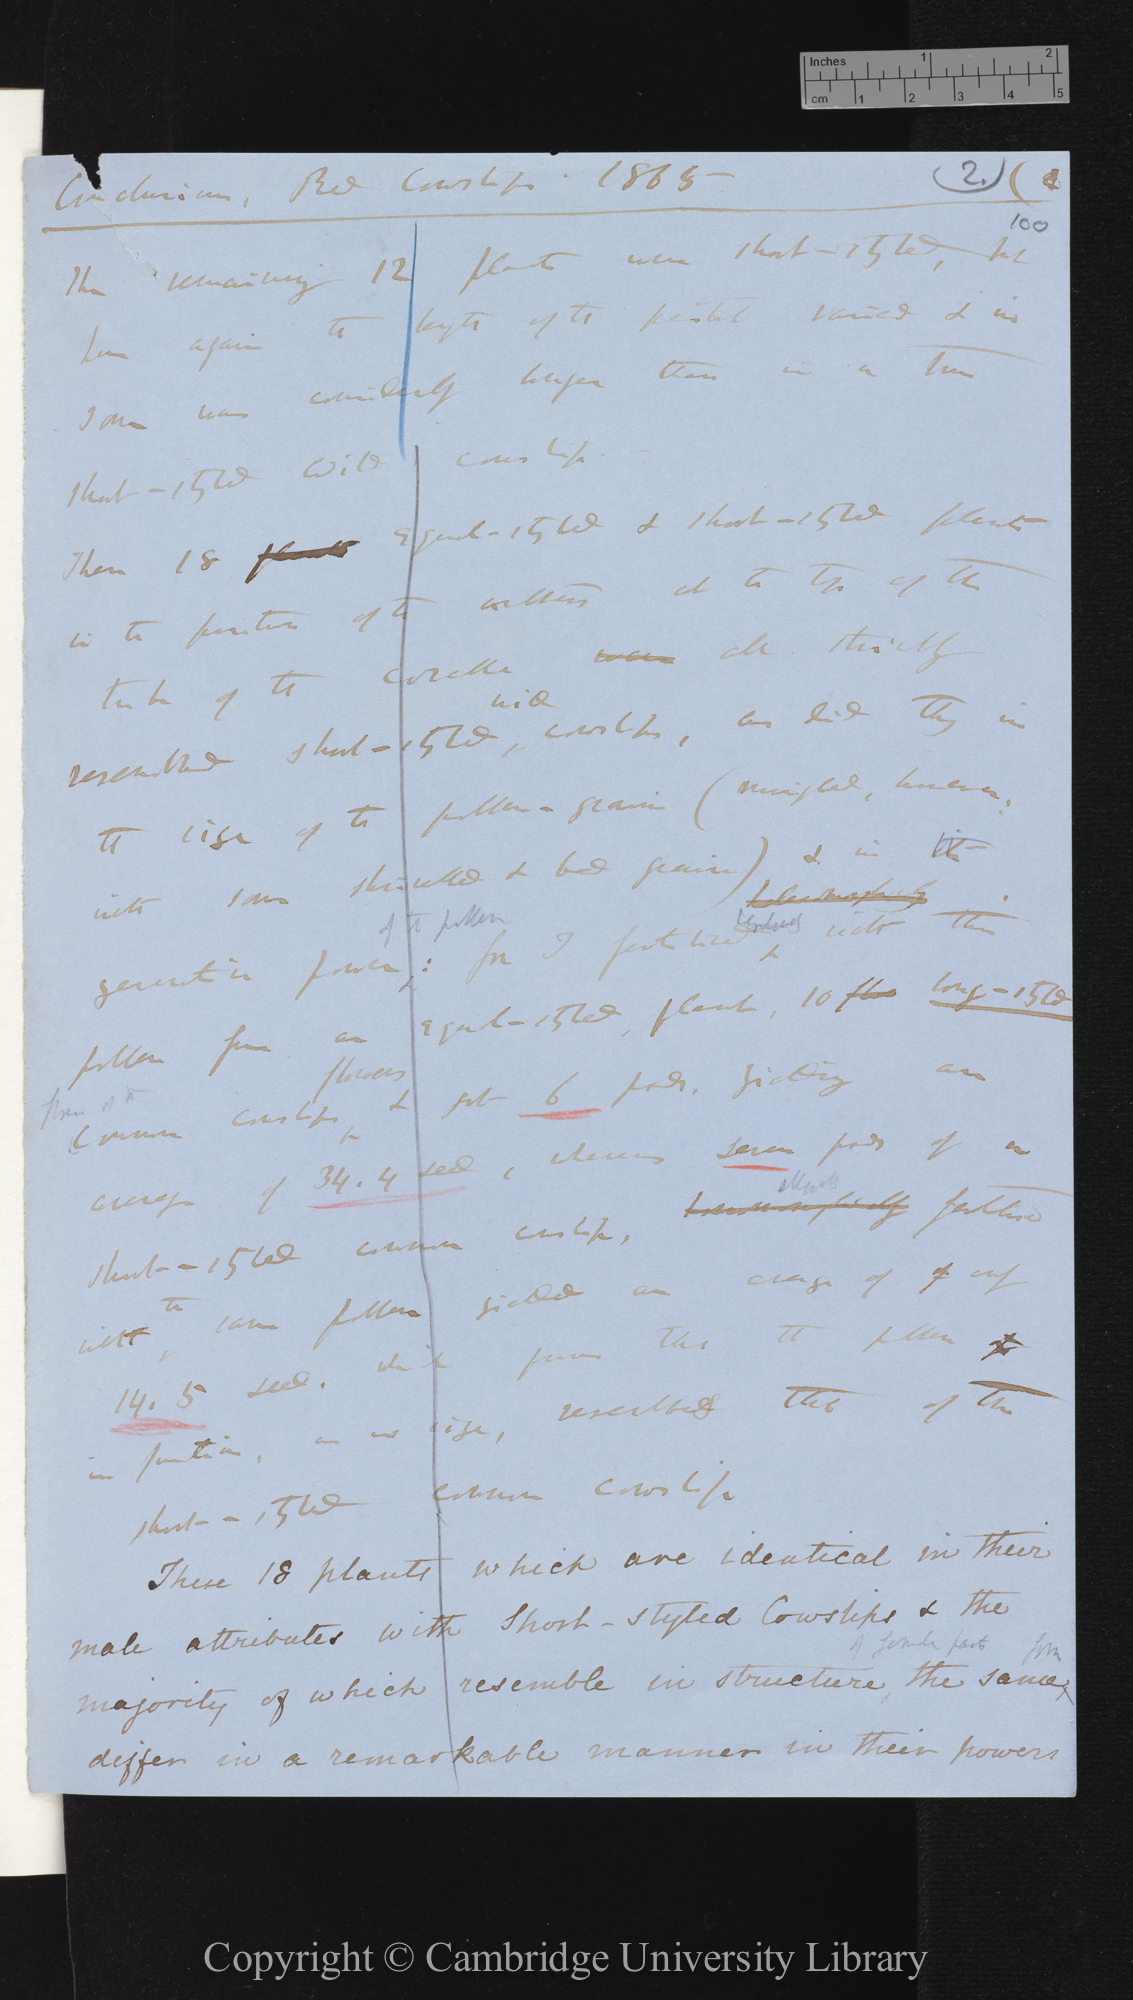 Inches 1 2
cm 1 2 3 4 5
Conclusions, Red Cowslips. 1865 — (2.) (
100
The remaining 12 plants were short-styled, but
here again the length of the pistil varied & in
some was considerably longer than in a true
short-styled wild cowslip.
These 18 plants equal-styled & short-styled plants
in the position of the anthers at the top of the
tube of the corolla were all strictly
wild
resembled short-styled, cowslips, as did they in
the size of the pollen-grains (mingled, however,
with some shrivelled & bad grains) & in the
of the pollen
generative power: for I fertilised with this
pollen from an equal-styled plant, 10 flo long-styled
flowers
form of the
common cowslips & got 6 pods, yielding an
average of 34.4 seed, whereas seven pods of a
short-styled common cowslip, homomorphically fertilised
with the same pollen yielded an average of only
14.5 seed. which proves that the pollen
in function, as in size, resembled that of the
short-styled common cowslip
These 18 plants which are identical in their
male attributes with Short-styled Cowslips & the
of female parts form
majority of which resemble in structure the same
differ in a remarkable manner in their powers
Copyright © Cambridge University Library